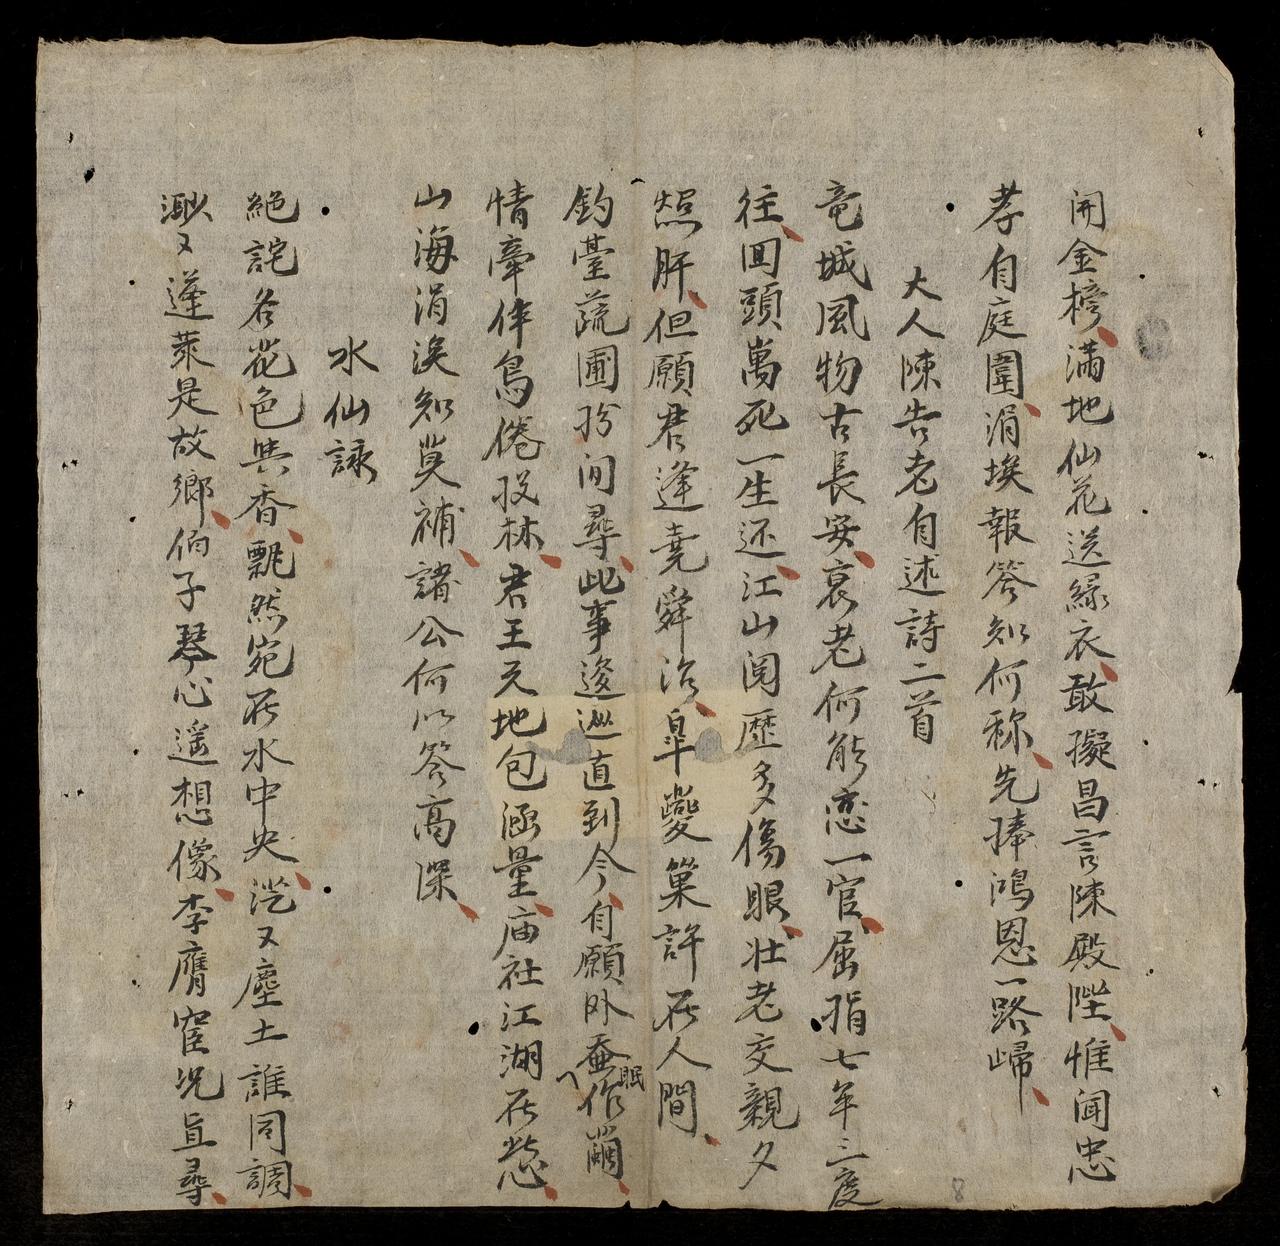 開金榜滿地仙花送綠衣敢擬昌言陳殿陛惟闻忠
孝自庭圍涓埃報答知何称先捧鴻恩一路歸
大人陳告老自述詩二首
竜城風物古長安衰老何能恋一官屈指七年三度
往回頭萬死一生还江山閱歷多傷眼壮老交親夕
照肝但願君逢堯舜治皐夔巢許在人間
釣臺蔬圃孜间尋此事逡巡直到今自願外蚕作繭
眠
情牽伴鳥倦投林君王天地包涵量庙社江湖在愁
山海涓涘知莫補諸公何以答高深
水仙詠
絕詫名花色與香飄然宛在水中央茫又塵土誰同調
渺又蓬萊是故鄉伯子琴心遥想像李膺 况且尋
8